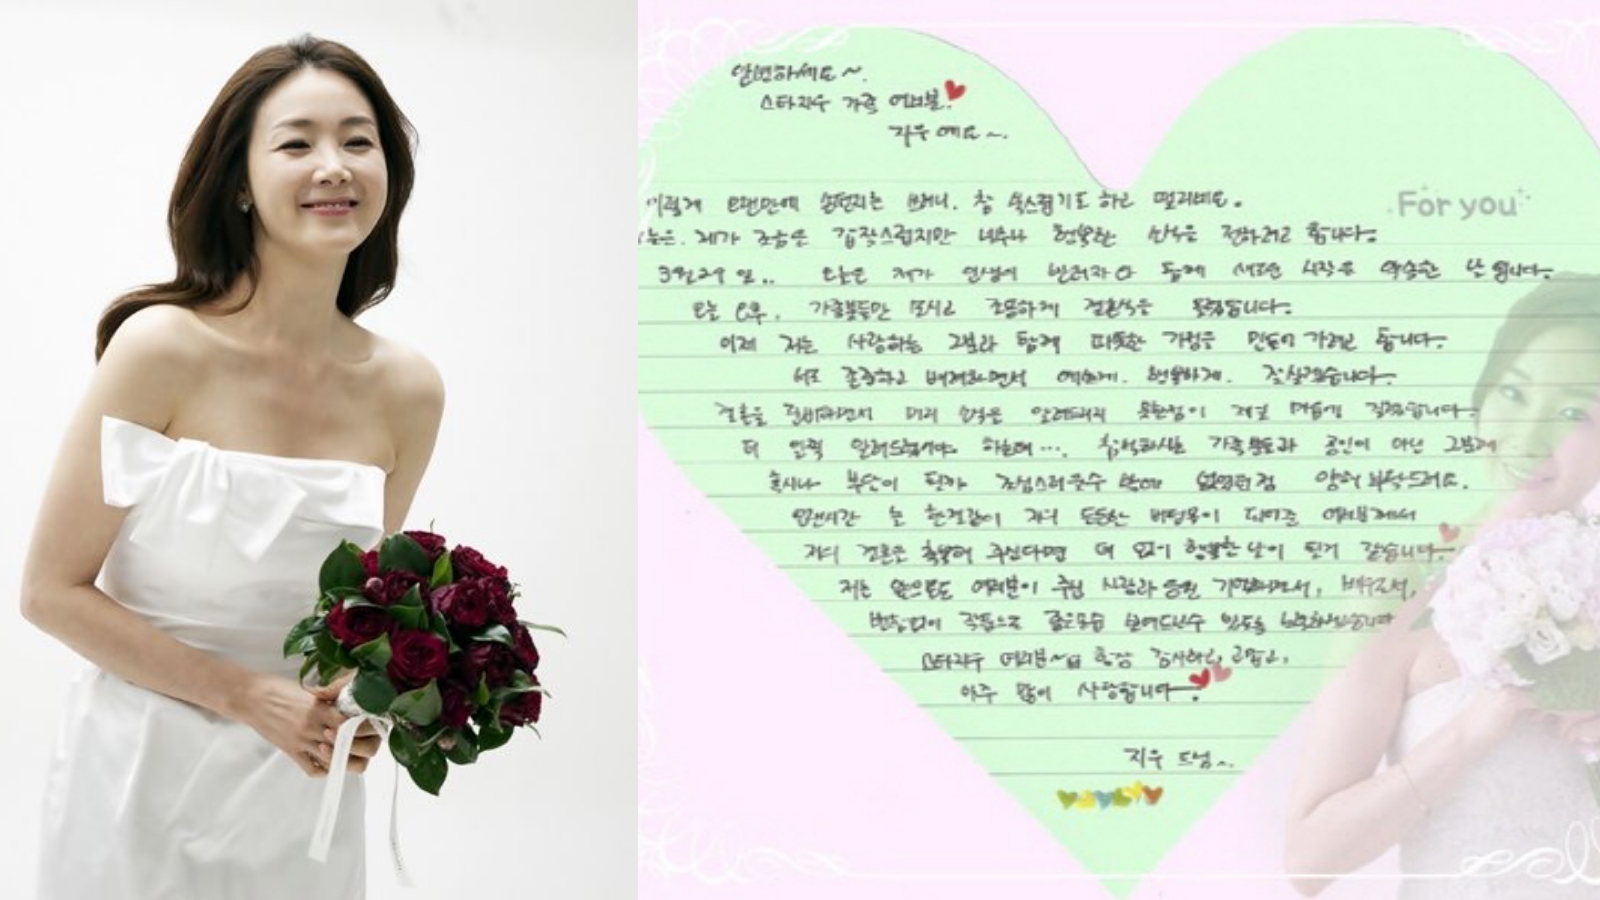 안녕하세요~.
스타지우 가족 여러분.
지우 예요~.
이렇게 오랜만에 손편지를 쓰려니. 참 쑥스럽기도 하고 떨리네요.
오늘은. 제가 조금은 갑작스럽지만 너무나 행복한 소식을 전하려고 합니다.
For you
3월 29일.. 오늘은 제가 인생의 반려자와 함께 새로운 시작을 약속한 날 입니다.
오늘 오후. 가족분들만 모시고 조용하게 결혼식을 올렸습니다.
이제 저는 사랑하는 그분과 함께 따뜻한 가정을 만들어 가려고 합니다.
서로 존중하고 배려하면서 예쁘게. 행복하게. 잘살겠습니다.
결혼을 준비하면서 미리 소식을 알려드리지 못한점이 계속 마음에 걸렸습니다.
더 일찍 알려드렸어야 하는데.... 참석하시는 가족분들과 공인이 아닌 그분께
혹시나 부담이 될까 조심스러울수 밖에 없었던점 양해 부탁드려요.
오랜시간 늘 한결같이 저의 든든한 버팀목이 되어준 여러분께서
저의 결혼을 축복해 주신다면 더 없이 행복한 날이 될거 같습니다.
저는 앞으로도 여러분이 주신 사랑과 응원 기억하면서, 배우로서,
변함없이 작품으로 좋은모습 보여드릴수 있도록 노력하겠습니다
스타지우 여러분~ 항상 감사하고, 고맙고,
아주 많이 사랑합니다.
지우 드림~.